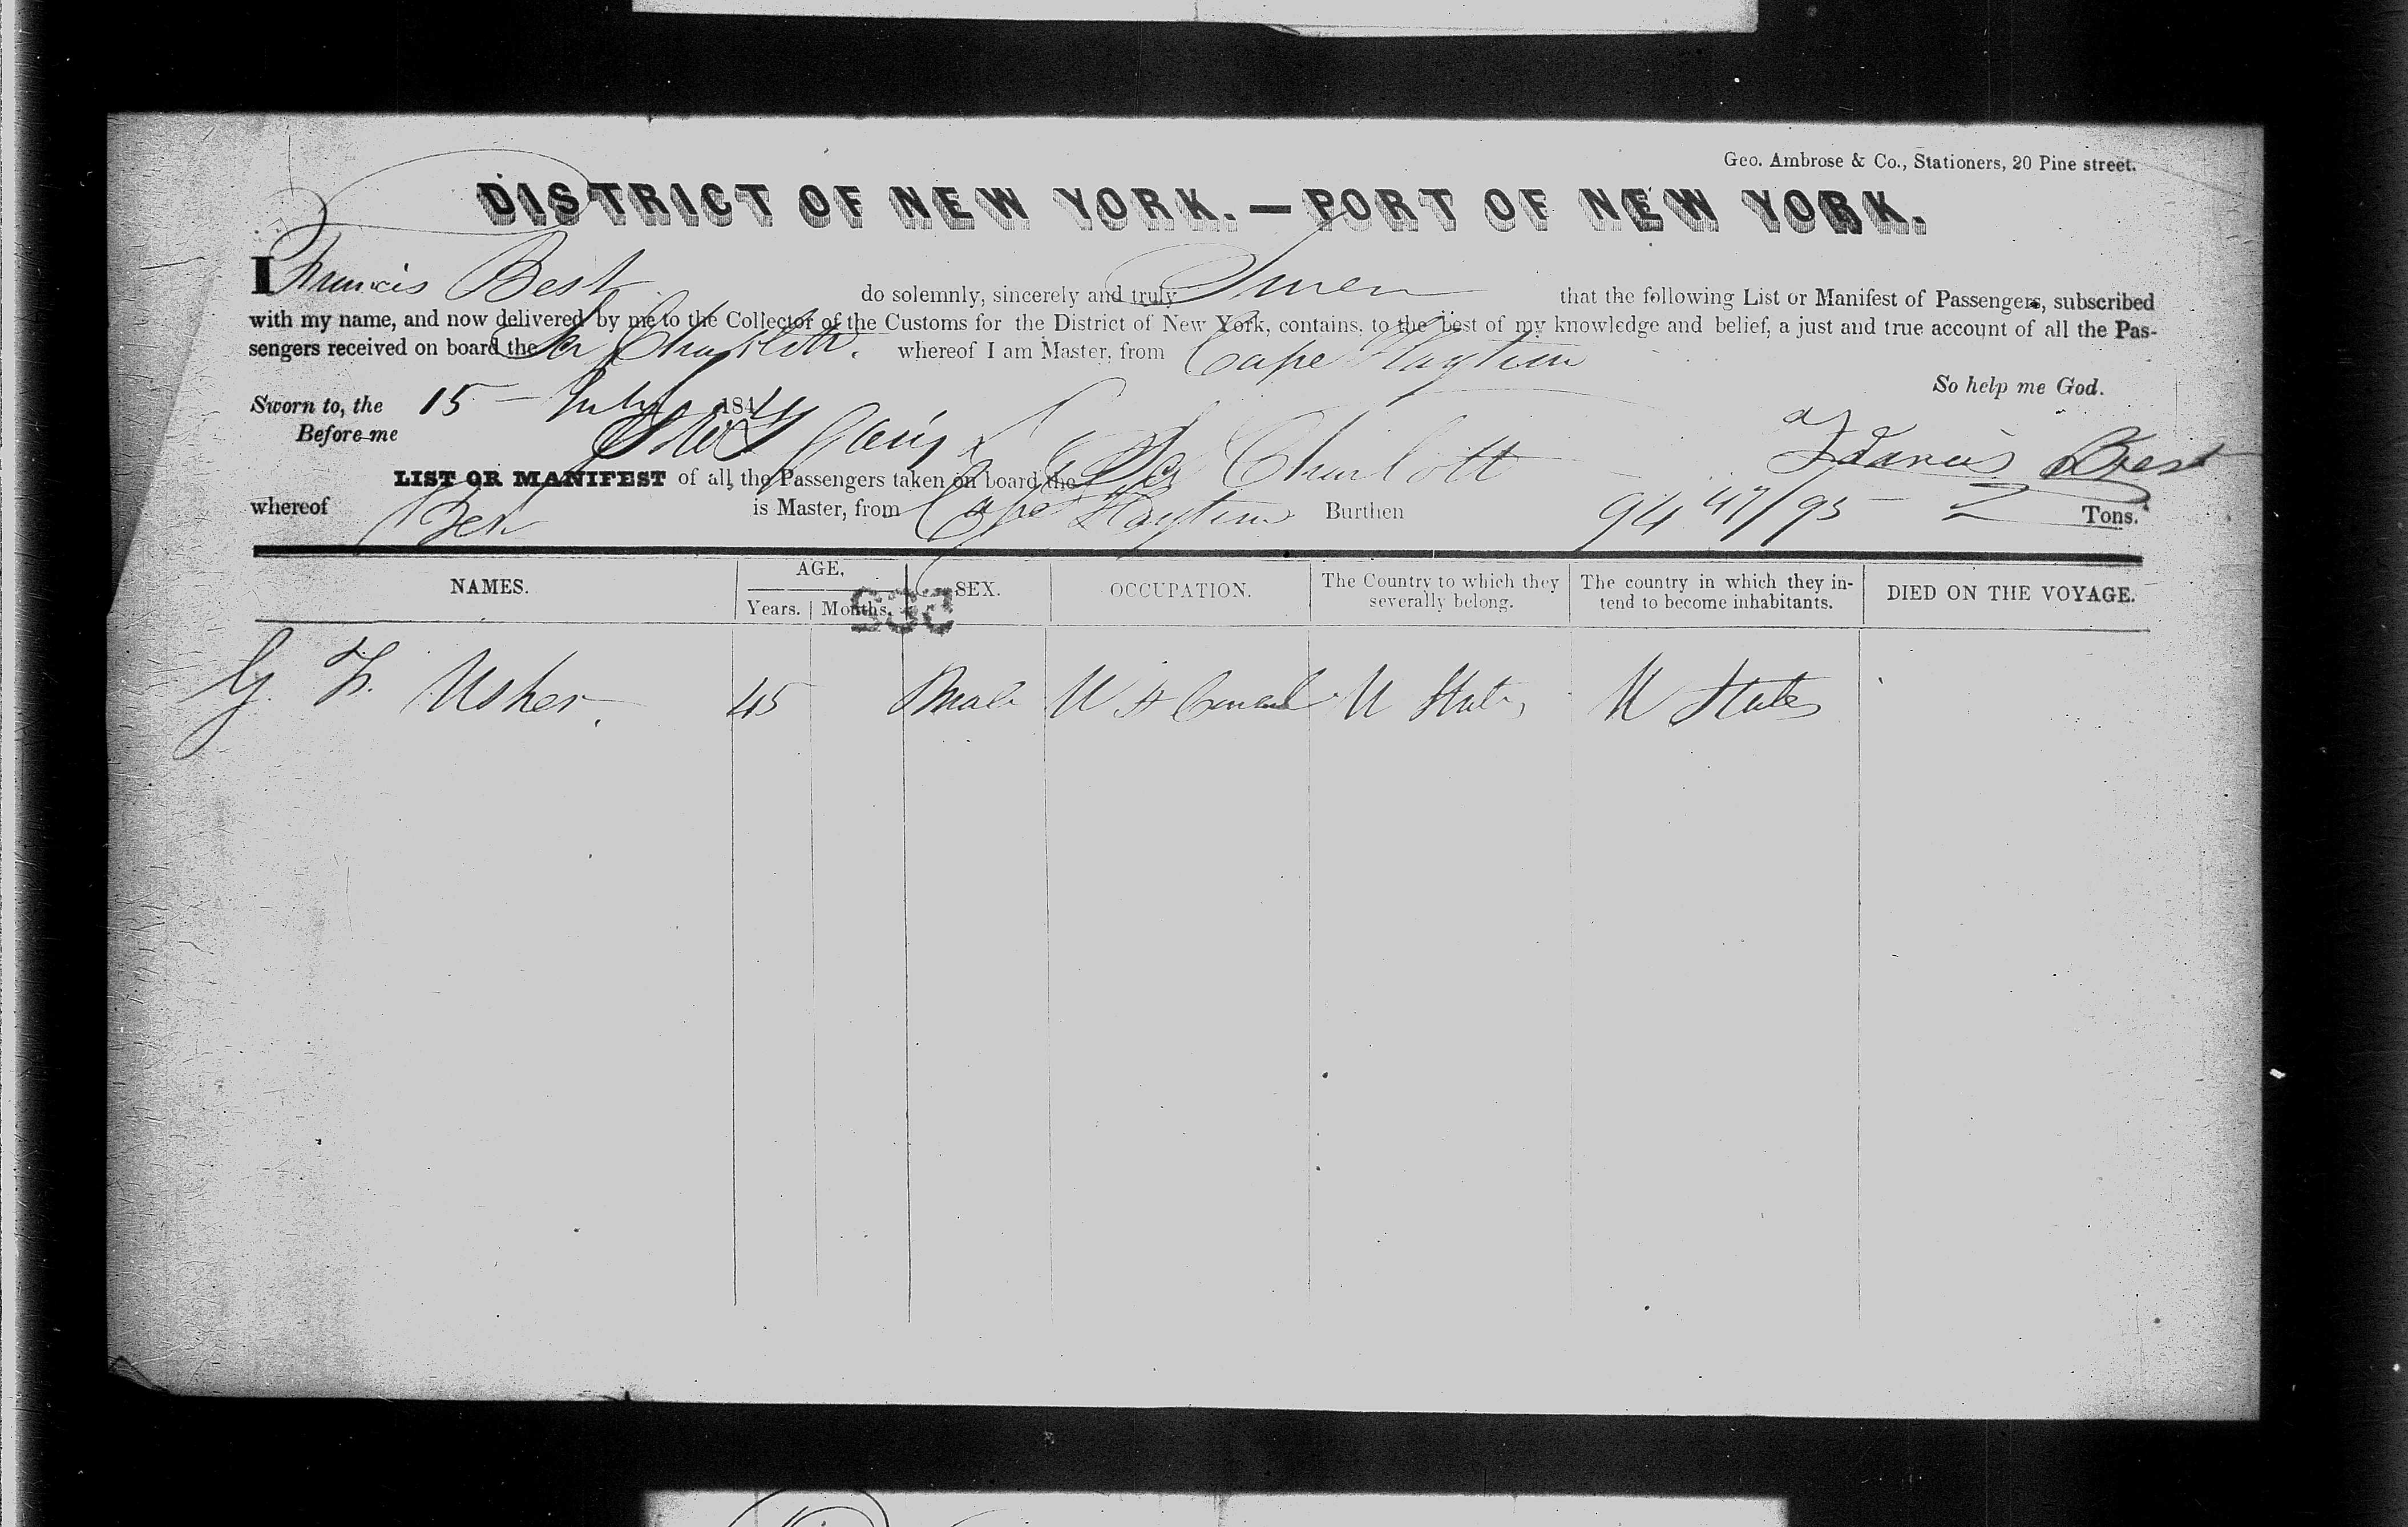 Geo. Ambrose & Co., Stationers, 20 Pine street.
DISTRICT OF NEW YORK.—PORT OF NEW YORK.
I Francis Best do solemnly, sincerely and truly Swear that the following List or Manifest of Passengers, subscribed
with my name, and now delivered by me to the Collector of the Customs for the District of New York, contains, to the best of my knowledge and belief, a just and true account of all the Pas-
sengers received on board the Sch whereof I am Master, from Cape Haytien
So help me God.
Sworn to, the 15 - July 1844
Before me
Francis Best
LIST OR MANIFEST of all the Passengers taken on board the Sch Charlott
whereof Best is Master, from Cape Haytien Burthen 94 47/95 Tons.
NAMES. AGE, SEX. OCCUPATION. The Country to which they severally belong. The country in which they in-tend to become inhabitants. DIED ON THE VOYAGE.
Years. Months.
G. F. Usher. 45 Male U S Consul U States U States